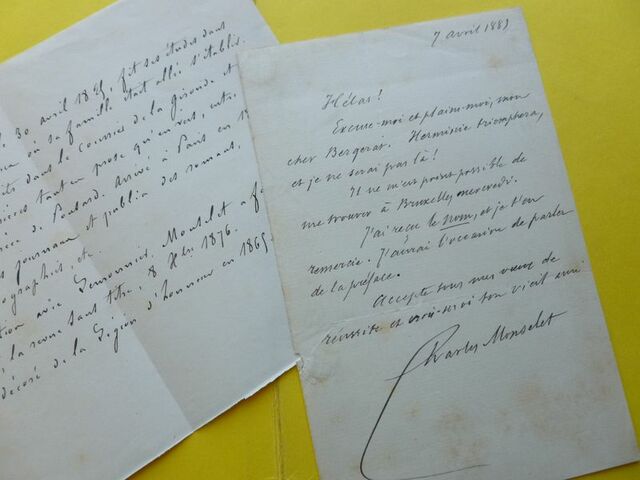 30 avril 1825, fit ses études dans
où sa famille était allée s'établir.
dans le Courrier de la Gironde et
tant en prose qu'en vers, entre
de Ponsard. Arrivé à Paris en
journaux et publia des romans,
etc
avec Lemonnier, Monselet a
la revue sans titre, 8 8bre 1876.
décoré de la Légion d'honneur en 1865
7 avril 1883
Hélas!
Excuse-moi et plains-moi, mon
cher Bergerat. Herminie triomphera,
et je ne serai pas là!
Il ne m'est point possible de
me trouver à Bruxelles mercredi.
J'ai reçu le nom, et je t'en
remercie. J'aurai l'occasion de parler
de la préface.
Accepte tous mes vœux de
réussite et crois-moi ton vieil ami
Charles Monselet